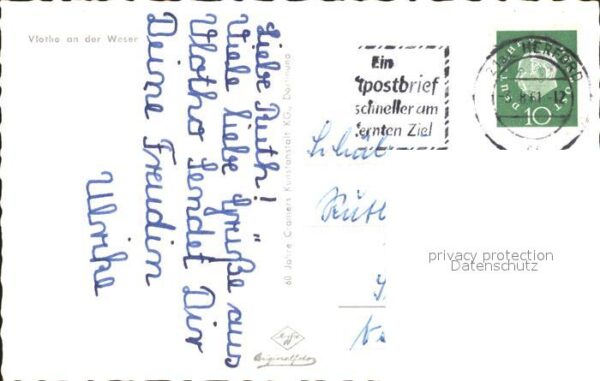 Vlotho an der Weser
Liebe Ruth!
Viele liebe Grüße aus
Vlotho sendet Dir
Deine Freudin
Ulrike
60 Jahre Cramers Kunstanstalt KG., Dortmund
Agfa
Originalfoto
Ein
tpostbrief
schneller am
fernten Ziel
HERFORD
61.-12
10
Schül
Ruth
privacy protection
Datenschutz